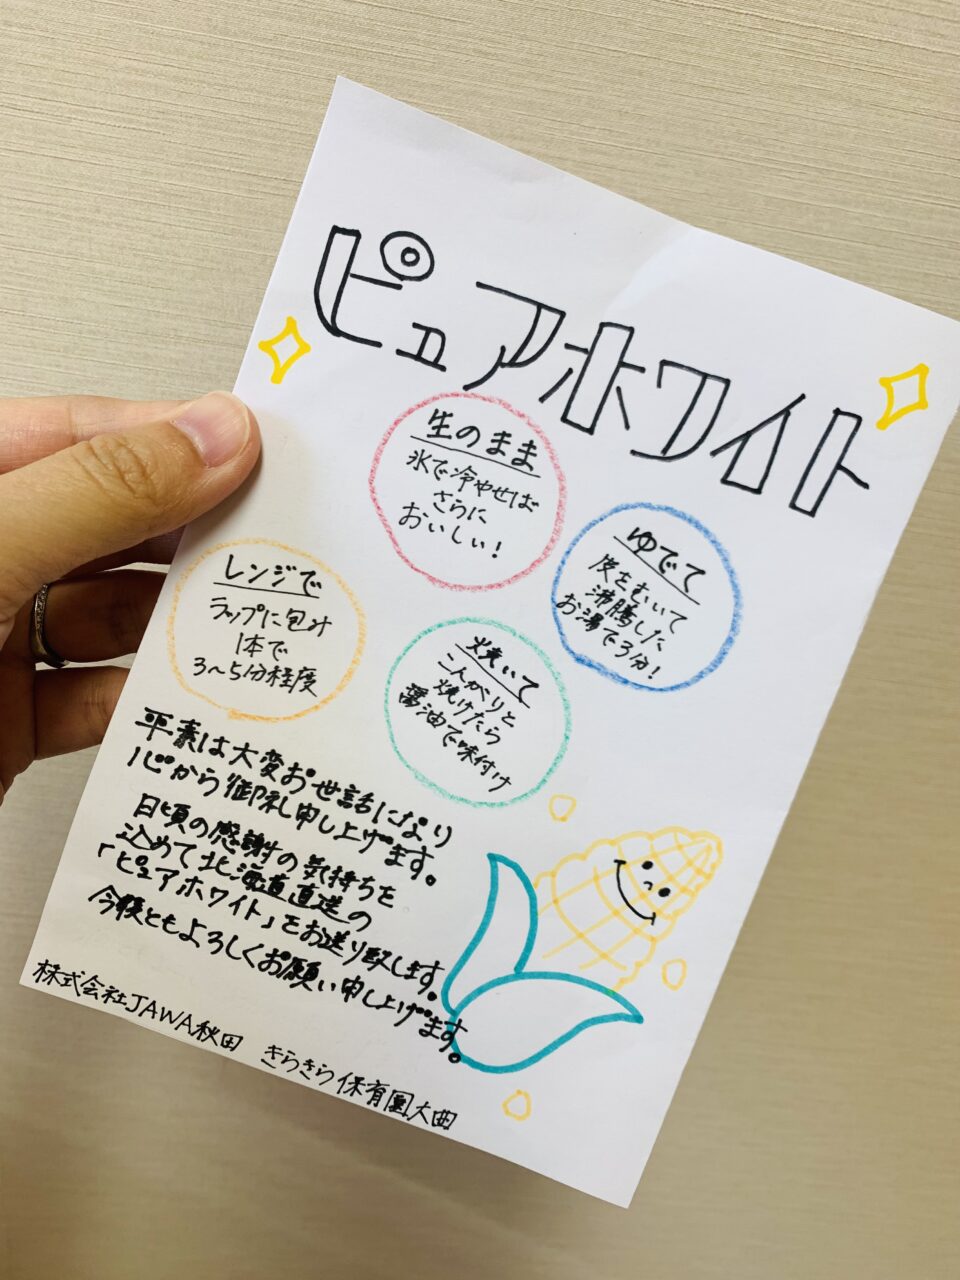 ピュアホワイト
生のまま
氷で冷やせば
さらに
おいしい!
ゆでて
皮をむいて
沸騰した
お湯で3分!
レンジで
ラップに包み
1本で
3～5分程度
焼いて
こんがりと
焼けたら
醤油で味付け
平素は大変お世話になり
心から御礼申し上げます。
日頃の感謝の気持ちを
込めて北海道直送の
「ピュアホワイト」をお送り致します。
今後ともよろしくお願い申し上げます。
株式会社JAWA秋田 きらきら保育園大曲